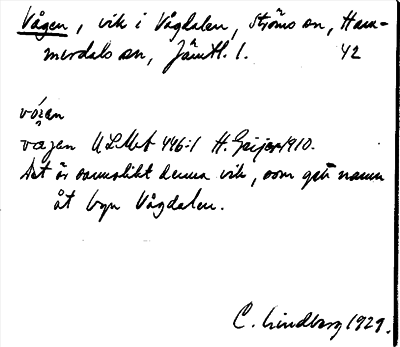 Vågen, vik i Vågdalen, Ströms sn, Ham-
merdals sn, Jämtl. l. 42
vógen
vågen ULMA 446:1 H. Geijer 1910.
Det är sannolikt denna vik, som gett namn
åt byn Vågdalen.
C. Lindberg 1929.